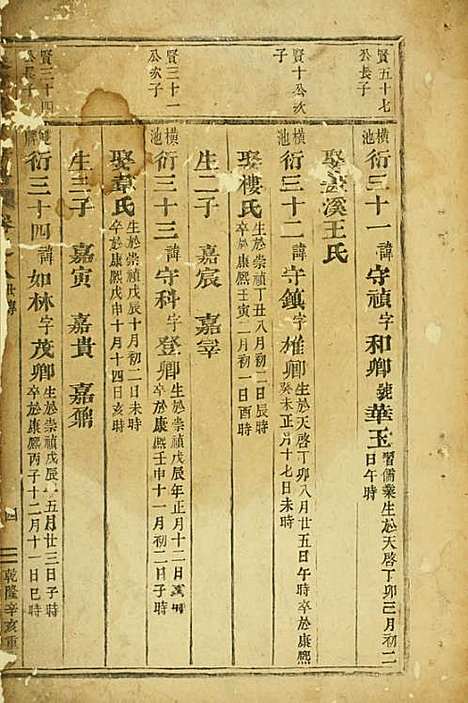 賢五十七
公長子
橫池
衍三十一 諱守禎字和卿號華玉 習儒業生於天啓丁卯三月初二
日午時
娶 溪王氏
賢十公次
子
橫池
衍三十二 諱守鎮字權卿 生於天啓丁卯八月廿五日午時卒於康熙
癸未正月十七日未時
娶樓氏 生於崇禎丁丑八月初二日辰時
卒於康熙壬寅二月初一日酉時
生二子 嘉宸 嘉宰
賢三十一
公次子
橫池
衍三十三 諱守科字登卿 生於崇禎戊辰年正月十二日 時
卒於康熙壬申十一月初二日子時
娶 氏 生於崇禎戊辰十月初二日未時
卒於康熙戊申十月十四日亥時
生三子 嘉寅 嘉貴 嘉鼐
賢三十四
公長子
衍三十四 諱如林字茂卿 生於崇禎戊辰十五月廿三日子時
卒於康熙丙子十二月十一日巳時
世傳
四
乾隆辛亥重